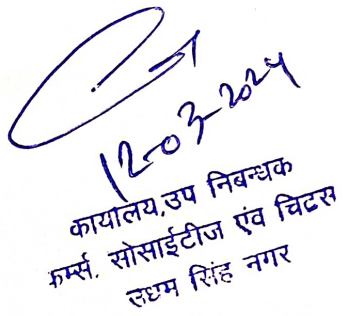 12-03-2024
कार्यालय,उप निबन्धक
फर्म्स. सोसाईटीज एंव चिटस
उधम सिंह नगर